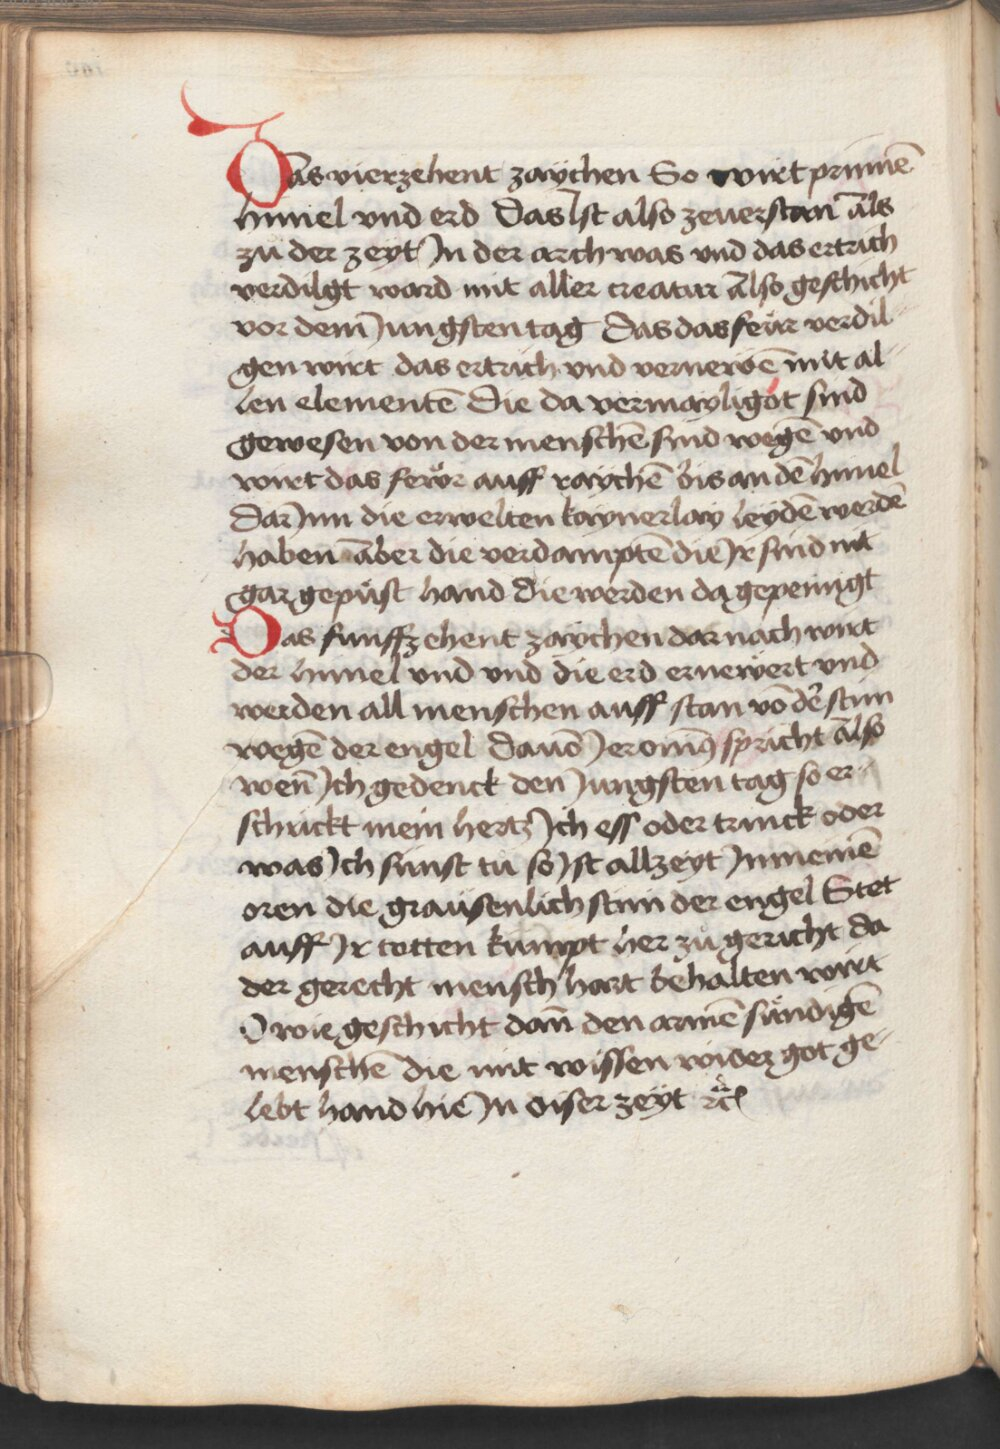 Das vierzehent zaÿchen So wirt prinnē
himel vnd erd Das Ist also zeuerstan Als
zů der zeyt In der arch was vnd das ertrich
verdilgt ward mit aller creatur Also geschicht
vor dem Jungsten tag Das das feẅr verdil-
gen wirt das ertrich vnd vernewē mit al-
len elementē Die da vermayligot sind
gewesen von der menschē sind wegē vnd
wirt das feẅr auff raychē bis an dē himel
Dar Inn die erwelten kaynerlay leydē werdē
haben Aber die verdamptē die Ir sind nit
gar gepüst hand Die werden da gepeinigt
Das funffzehent zaychen dar nach wirt
der himel vnd vnd die erd ernewert vnd
werden all menschen auff stan vō der stim
wegē der engel Dauō Jeronimꝰ spricht Also
wen̄ Ich gedenck den Jungsten tag so er-
schrickt mein hertz Ich ess oder trinck oder
was Ich sunst tů so Ist allzeyt In meinē
oren die graüsenlich stim der engel Stet
auff Ir totten kumpt her zů gericht da
der gerecht mensch hart behalten wirt
O wie geschicht dan̄ den armē sündigē
menschē die mit wissen wider got ge-
lebt hand hie In diser zeÿt ꝛcᷓ